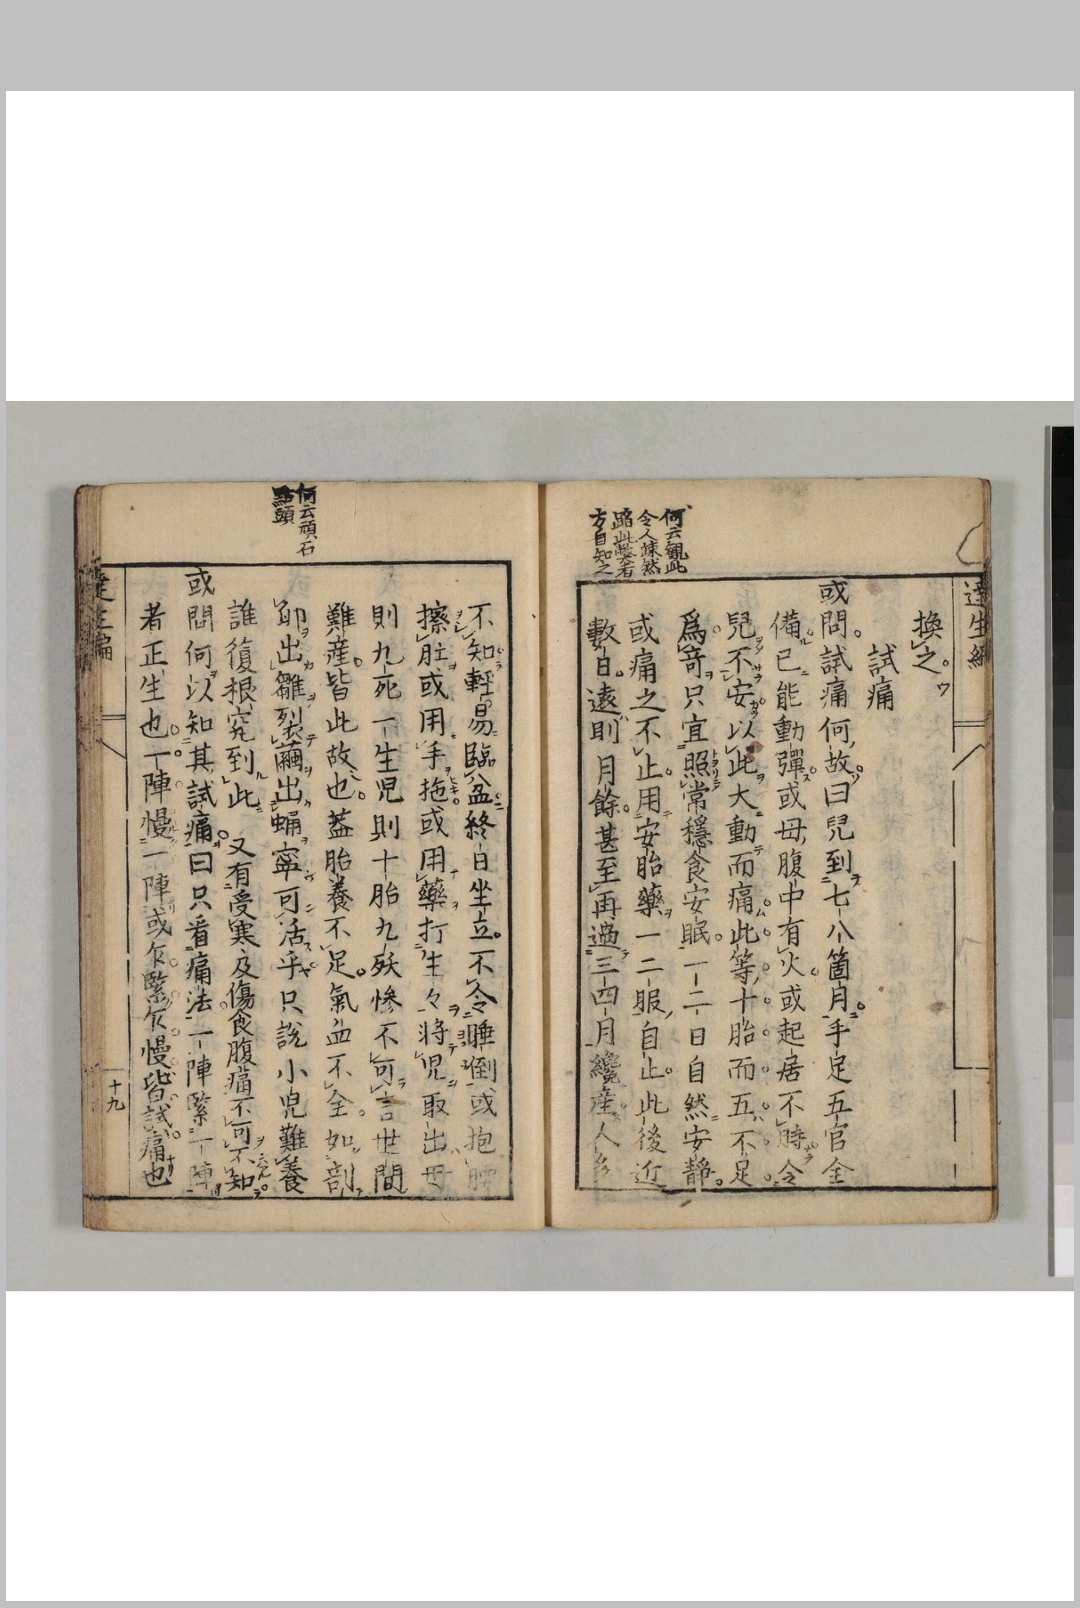 達生編
換之
試痛
或問試痛何故曰兒到七八箇月手足五官全
備已能動彈或母腹中有火或起居不時令
兒不安以此大動而痛此等十胎而五不足
爲奇只宜照常穩食安眠一二日自然安靜
或痛之不止用安胎藥一二服自止此後近
數日遠則月餘甚至再過三四月纔產人多
何云觀此
令人悚然
蹈此弊者
方自知之
不知輕易臨盆終日坐立不令睡倒或抱腰
擦肚或用手拖或用藥打生々將児取出母
則九死一生児則十胎九殀慘不可言世間
難産皆此故也蓋胎養不足氣血不全如剖
卵出雛裂繭出蛹寧可活乎只説小児難養
誰復根究到此又有受寒及傷食腹痛不可不知
或問何以知其試痛曰只看痛法一陣緊一陣
者正生也一陣慢一陣或乍緊乍慢皆試痛也
何云頑石
點頭
達生編
十九